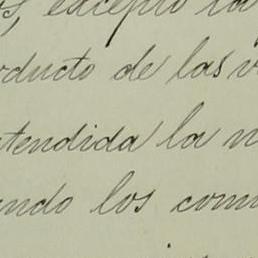 os, excepto la
oducto de las v
ntendida la n
ando los com